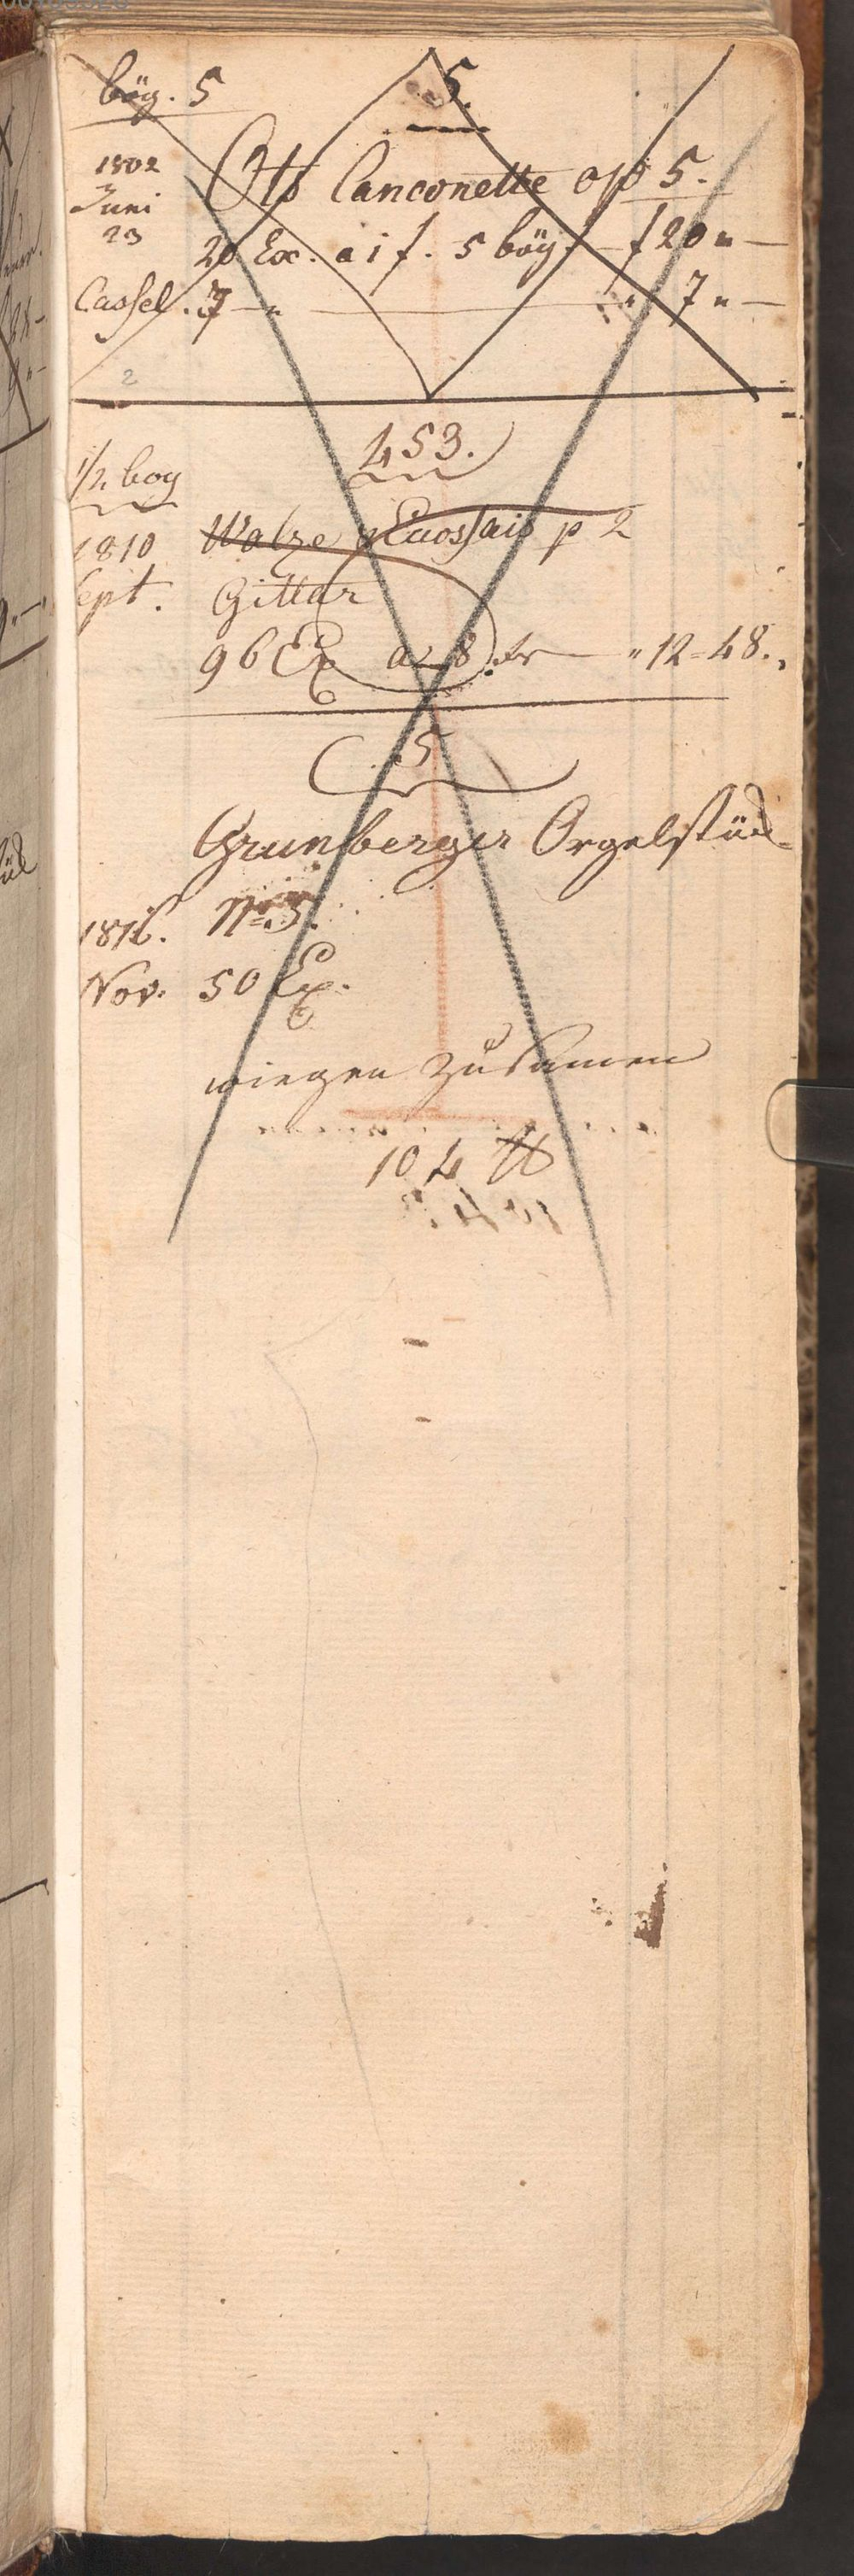 bög. 5
5.
1802
Juni
23
Otto Canconette op 5.
20 Ex. a 1 f. 5 bög. — f 20 " —
Cassel. 7 — " — " 7 " —
2
453.
1/2 bog
1810
Sept.
Walze Ecossais p 2
Gittar
96 Ex a 8 xr — " 12 = 48.
5
Grunberger Orgelstück
1816.
Nov.
No. 5.
50 Ex.
wiegen zusamen
104 ℔